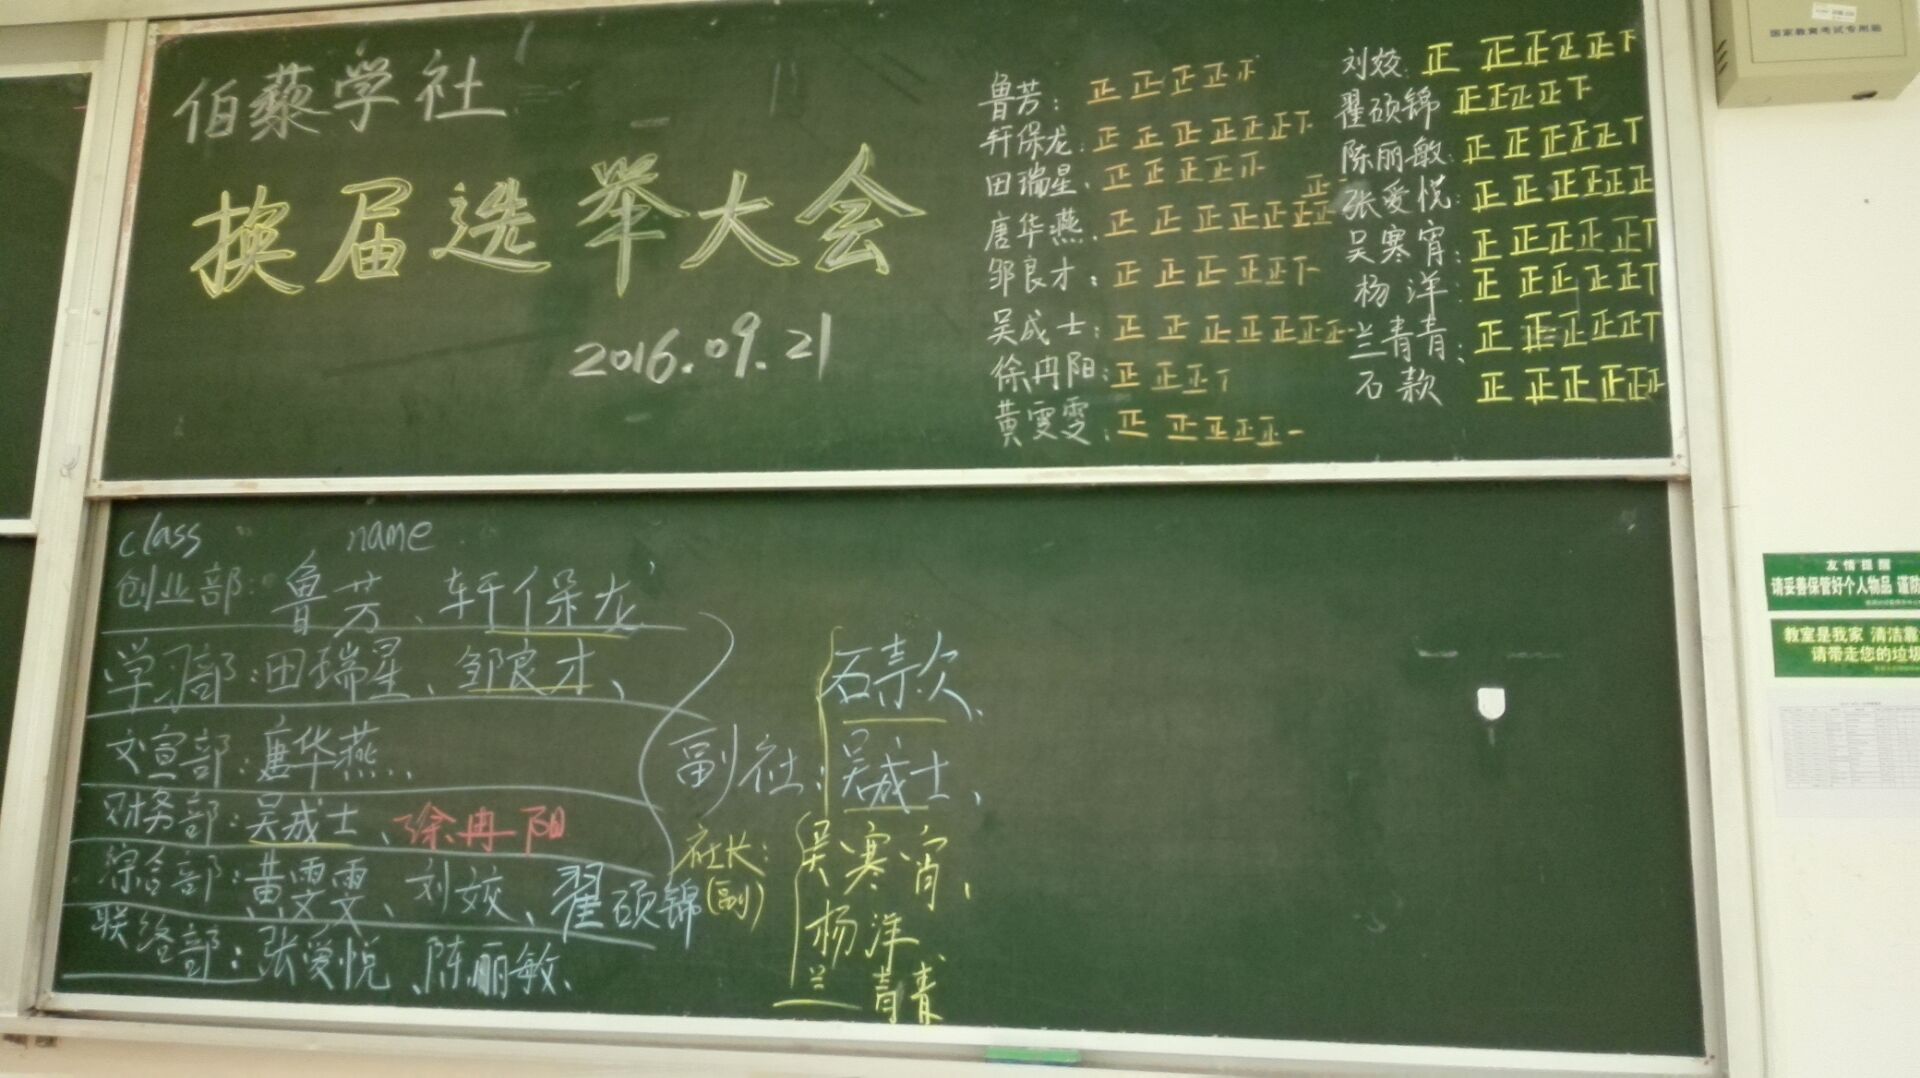 伯藜学社
换届选举大会
2016.09.21
鲁芳: 正正正正
轩保龙: 正正正正正正下
田瑞星、正正正正
唐华燕、正正正正正正正正
邹良才: 正正正正正下
吴成士: 正正正正正正正
徐冉阳: 正正正丅
黄雯雯: 正正正正正一
刘姣: 正正正正正下
翟硕锦 正正正正下
陈丽敏: 正正正正正丅
张爱悦: 正正正正正正
吴寒宵: 正正正正正丅
杨洋: 正正正正正丅
兰青青: 正正正正正丅
石款 正正正正正正
class name
创业部: 鲁芳、轩保龙
学习部: 田瑞星、邹良才、
文宣部: 唐华燕
财务部: 吴成士、徐冉阳
综合部: 黄雯雯、刘姣、翟硕锦
联络部: 张爱悦、陈丽敏、
副社: 石款、
吴成士、
社长: 吴寒宵、
(副) 杨洋
兰青青
国家教育考试专用箱
友情提醒
请妥善保管好个人物品 谨防
教室是我家 清洁靠
请带走您的垃圾